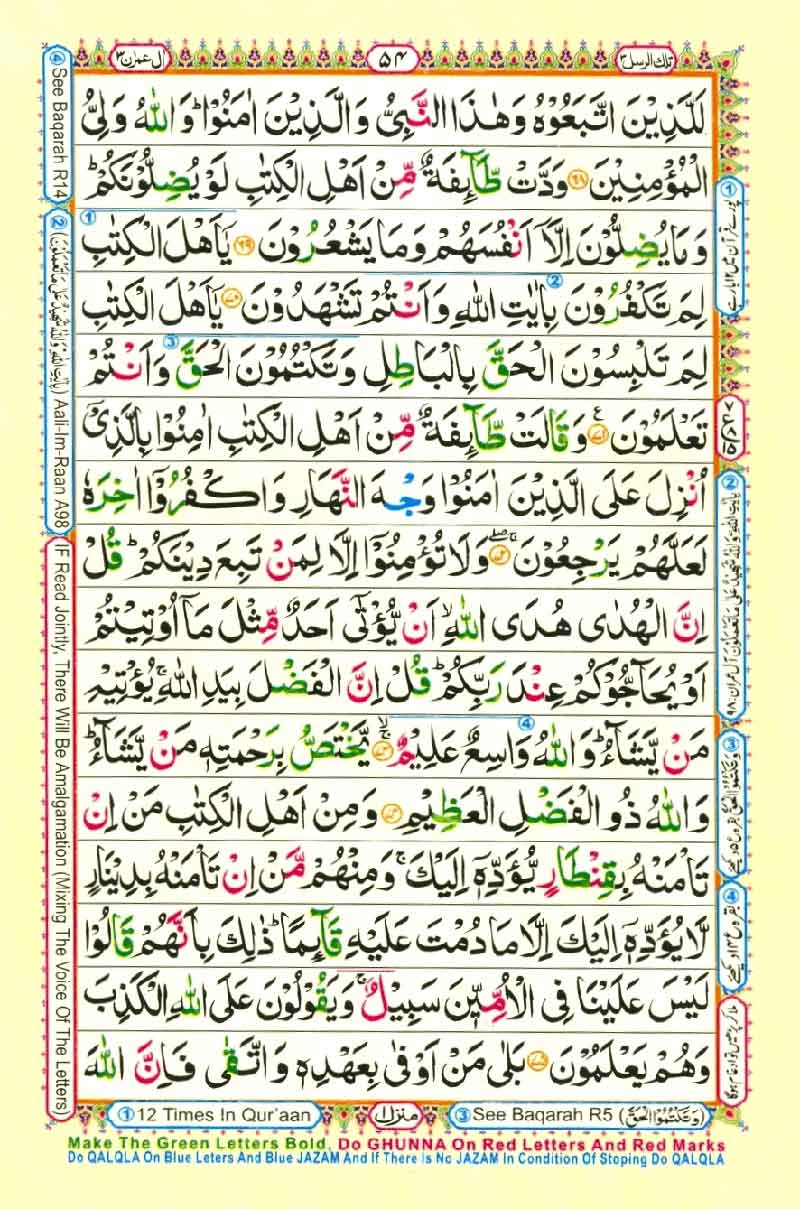 تلك الرسل ٣
۵۴
اٰل عمرٰن ٣
لَلَّذِيۡنَ اتَّبَعُوۡهُ وَهٰذَا النَّبِىُّ وَالَّذِيۡنَ اٰمَنُوۡا‌ؕ وَاللّٰهُ وَلِىُّ
الۡمُؤۡمِنِيۡنَ‏ ﴿۶۸﴾ وَدَّتۡ طَّآٮِٕفَةٌ مِّنۡ اَهۡلِ الۡكِتٰبِ لَوۡ يُضِلُّوۡنَكُمؕۡ
وَمَا يُضِلُّوۡنَ اِلَّاۤ اَنۡفُسَهُمۡ وَمَا يَشۡعُرُوۡنَ‏ ﴿۶۹﴾ يٰۤاَهۡلَ الۡكِتٰبِ ①
لِمَ تَكۡفُرُوۡنَ بِاٰيٰتِ اللّٰهِ وَاَنۡتُمۡ تَشۡهَدُوۡنَ‏ ﴿۷۰﴾ يٰۤاَهۡلَ الۡكِتٰبِ ②
لِمَ تَلۡبِسُوۡنَ الۡحَـقَّ بِالۡبَاطِلِ وَتَكۡتُمُوۡنَ الۡحَـقَّ وَاَنۡتُمۡ ③
تَعۡلَمُوۡنَ‏ ﴿۷۱﴾ وَقَالَتۡ طَّآٮِٕفَةٌ مِّنۡ اَهۡلِ الۡكِتٰبِ اٰمِنُوۡا بِالَّذِىۡۤ
اُنۡزِلَ عَلَى الَّذِيۡنَ اٰمَنُوۡا وَجۡهَ النَّهَارِ وَاكۡفُرُوۡۤا اٰخِرَهٗ
لَعَلَّهُمۡ يَرۡجِعُوۡنَ ‌ۚۖ‏ ﴿۷۲﴾ وَلَا تُؤۡمِنُوۡۤا اِلَّا لِمَنۡ تَبِعَ دِيۡنَكُمؕۡ قُلۡ
اِنَّ الۡهُدٰى هُدَى اللّٰهِۙ اَنۡ يُّؤۡتٰٓى اَحَدٌ مِّثۡلَ مَاۤ اُوۡتِيۡتُمۡ
اَوۡ يُحَآجُّوۡكُمۡ عِنۡدَ رَبِّكُمۡ‌ؕ قُلۡ اِنَّ الۡفَضۡلَ بِيَدِ اللّٰهِۚ يُؤۡتِيۡهِ
مَنۡ يَّشَآءُ ‌ؕ وَاللّٰهُ وَاسِعٌ عَلِيۡمٌۚ  ۙ‏ ﴿۷۳﴾ يَّخۡتَصُّ بِرَحۡمَتِهٖ مَنۡ يَّشَآءُ ‌ؕ ④
وَاللّٰهُ ذُو الۡفَضۡلِ الۡعَظِيۡمِ‏ ﴿۷۴﴾ وَمِنۡ اَهۡلِ الۡكِتٰبِ مَنۡ اِنۡ
تَاۡمَنۡهُ بِقِنۡطَارٍ يُّؤَدِّهٖۤ اِلَيۡكَ‌ۚ وَمِنۡهُمۡ مَّنۡ اِنۡ تَاۡمَنۡهُ بِدِيۡنَارٍ
لَّا يُؤَدِّهٖۤ اِلَيۡكَ اِلَّا مَا دُمۡتَ عَلَيۡهِ قَآٮِٕمًا‌ ؕ ذٰ لِكَ بِاَنَّهُمۡ قَالُوۡا
لَيۡسَ عَلَيۡنَا فِىۡ الۡاُمِّيّٖنَ سَبِيۡلٌۚ وَيَقُوۡلُوۡنَ عَلَى اللّٰهِ الۡكَذِبَ
وَ هُمۡ يَعۡلَمُوۡنَ‏ ﴿۷۵﴾ بَلٰى مَنۡ اَوۡفٰى بِعَهۡدِهٖ وَاتَّقٰى فَاِنَّ اللّٰهَ
④ See Baqarah R14
② (بِاٰيٰتِ اللّٰهِ وَاللّٰهُ شَهِيۡدٌ عَلٰى مَا تَعۡمَلُوۡنَ) Aali-Im-Raan A98
IF Read Jointly, There Will Be Amalgamation (Mixing The Voice Of The Letters)
① پورے قرآن میں ۱۲ بار ہے
② بِاٰيٰتِ اللّٰهِ وَاللّٰهُ شَهِيۡدٌ عَلٰى مَا تَعۡمَلُوۡنَ آل عمران: ۹۸
③ وَتَكۡتُمُوا الۡحَقَّ بقرہ ع۵ دیکھئے
④ بقرہ ع۱۴ دیکھئے
ملا کر پڑھیں تو ادغام ہوگا
① 12 Times In Qur'aan
منزل ١
③ See Baqarah R5 (وَتَكۡتُمُوا الۡحَقَّ)
Make The Green Letters Bold, Do GHUNNA On Red Letters And Red Marks
Do QALQLA On Blue Leters And Blue JAZAM And If There Is No JAZAM In Condition Of Stoping Do QALQLA